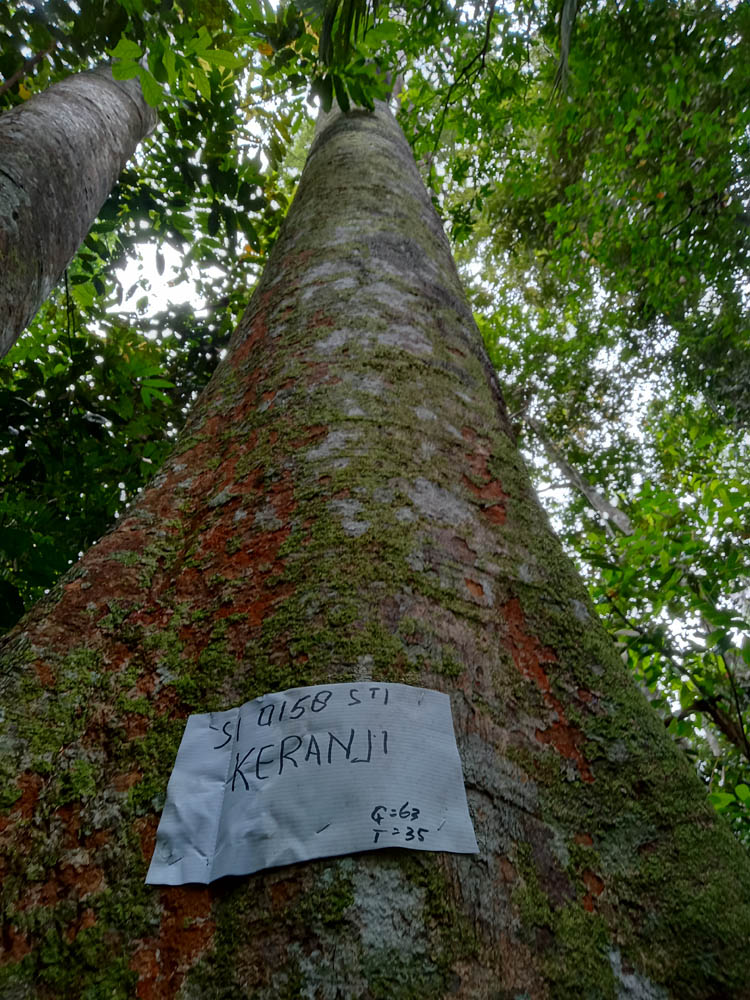 SI 0158 STI
KERANJI
G=63
T=35